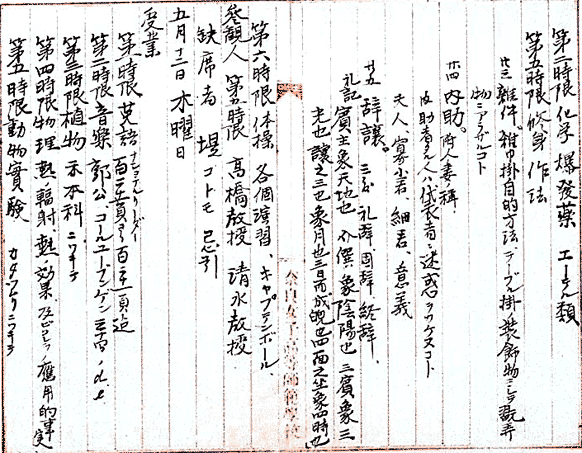 第二時限 化学 爆発薬 エーテル類
第五時限 修身 作法
廿三 雑件 雑巾掛目的方法、テーブル掛ノ装飾物ニシテ玩弄
物ニアラザルコト
廿四 内助。 府人妻ノ称
内助者タル人ハ代表者ニ迷惑ヲカケヌコト
夫人、 細君、 意義
廿五 辞譲。 三玉 礼辞、固辞、終辞。
礼記 賓主象天地也 介僎象陰陽也 三賓象三
光也 譲之三也 象月也三日而成魄也 四面之坐象四時也
第六時限 体操 各個演習、キャプテンボール、
参観人 第五時限 高橋教授 清水教授
缺席者 堤 コトモ 忌引
五月十二日 木曜日
受業
第一時限 英語 ナショナルリーダー 百二十頁ヨリ百二十一頁迄
第二時限 音楽 郭公、コールユーブンゲン
第三時限 植物 禾本科 ニワキヲ
第四時限 物理 熱ノ輻射 熱ノ効果 及ビソレラノ應用的事実
第五時限 動物実験
奈良女子高等師範学校